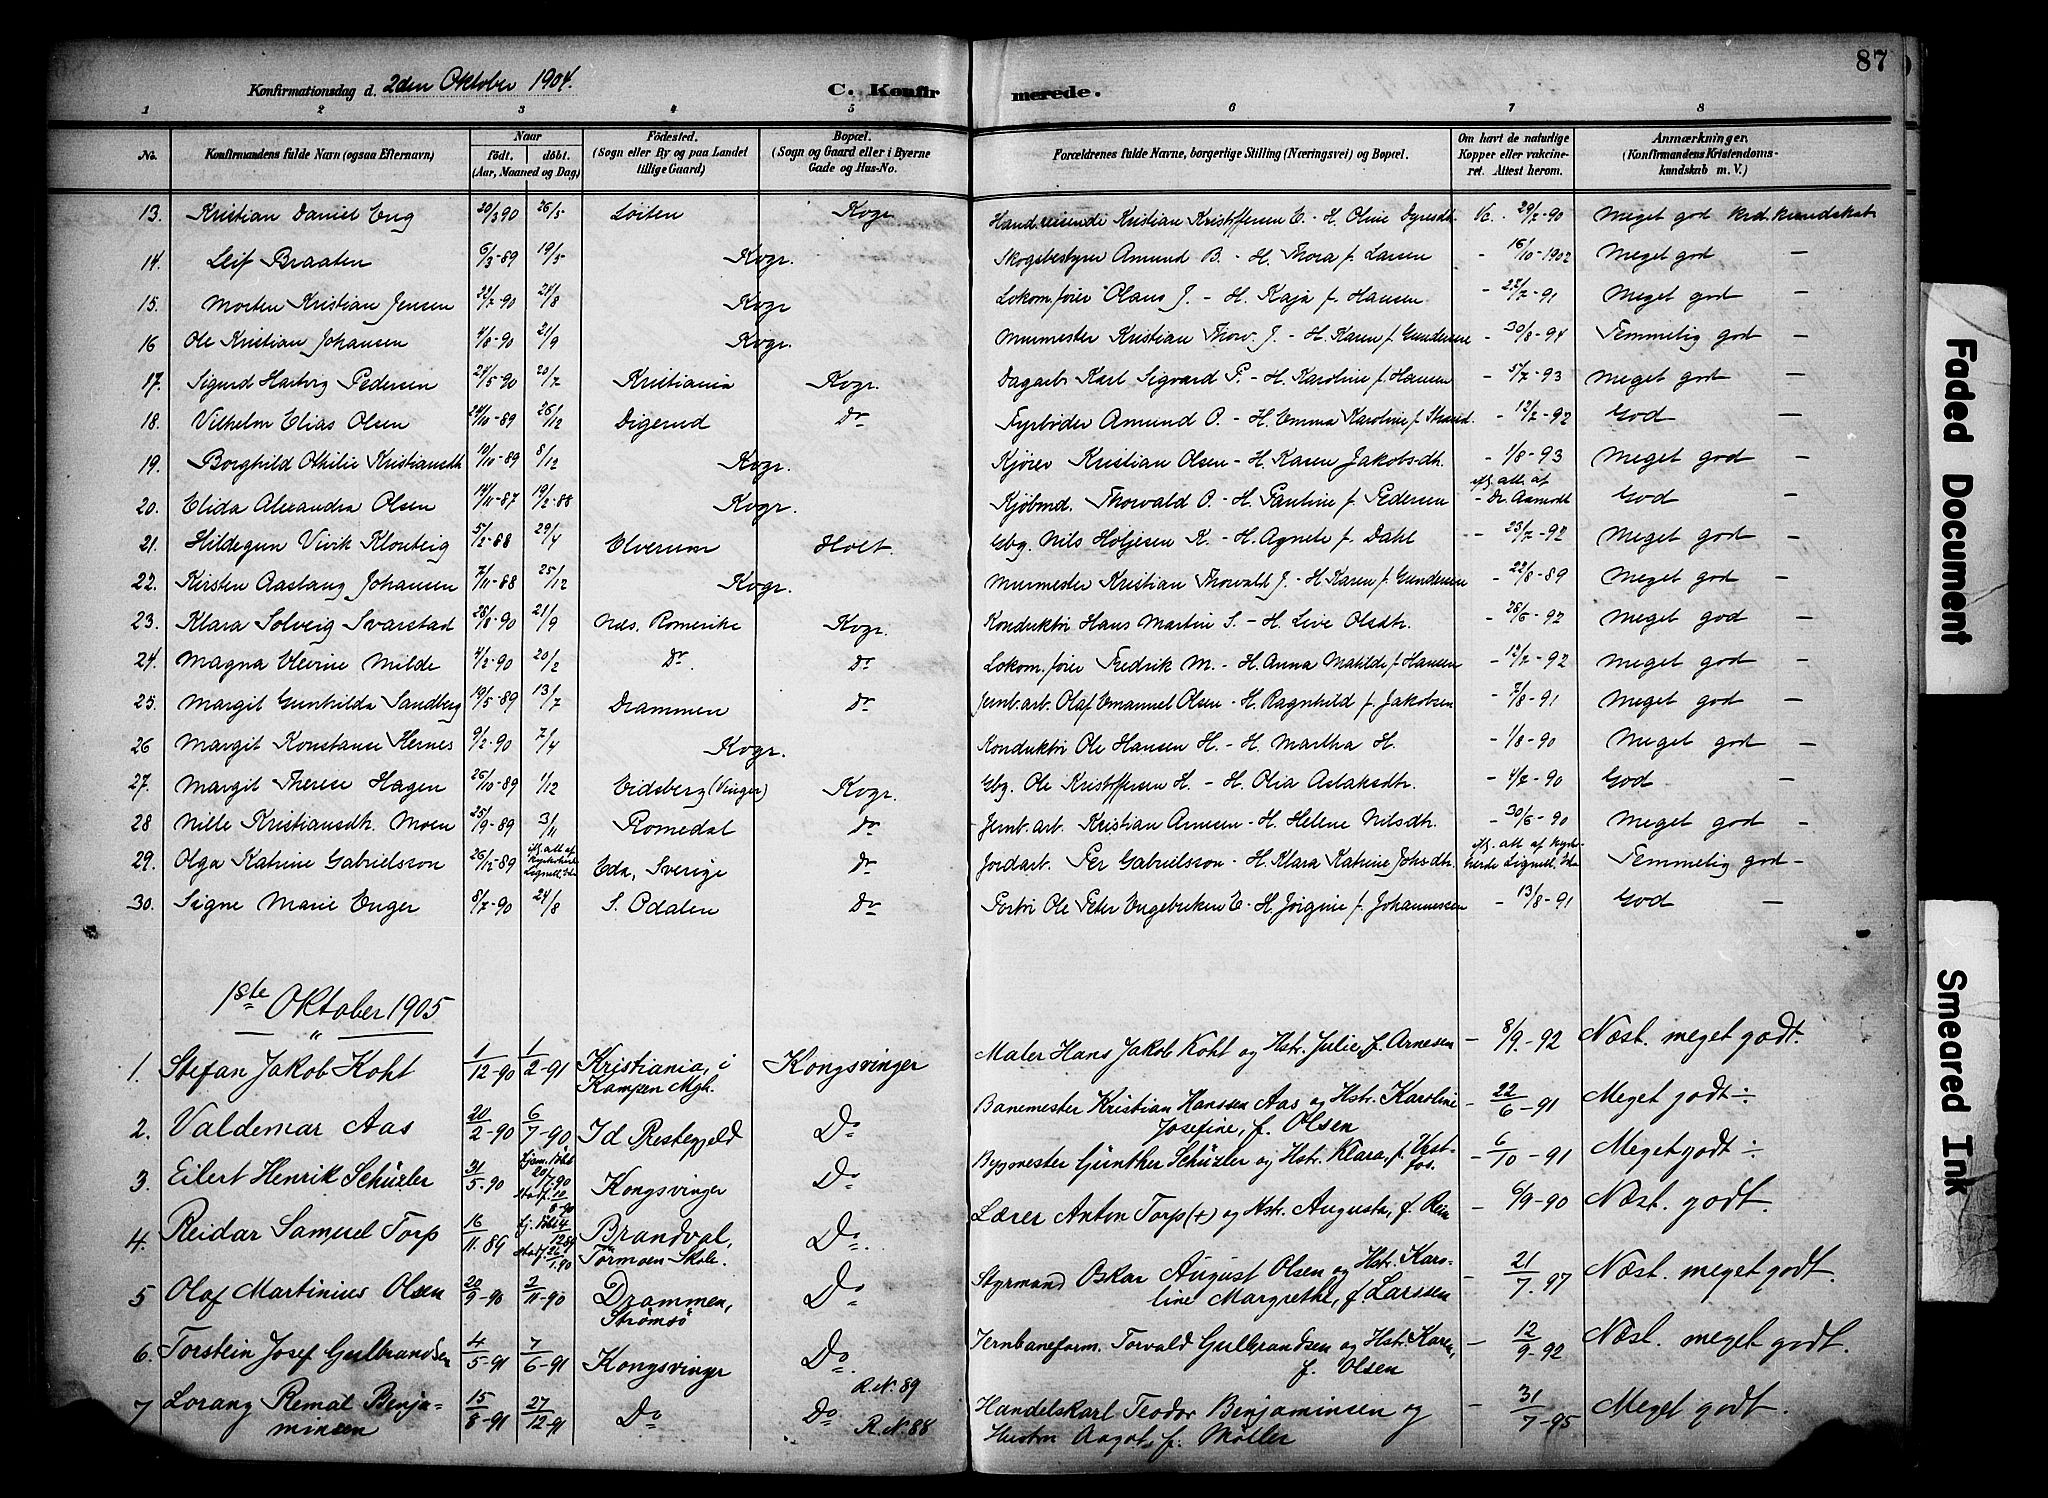 87
Konfirmationsdag d. 2den Oktober 1904.
C. Konfirmerede.
1 2 3 4 5 6 7 8
No. Konfirmandens fulde Navn (ogsaa Efternavn) Naar født. døbt. (Aar, Maaned og Dag) Fødested. (Sogn eller By og paa Landet tillige Gaard) Bopæl. (Sogn og Gaard eller i Byerne Gade og Hus-No. Forældrenes fulde Navne, borgerlige Stilling (Næringsvei) og Bopæl. Om havt de naturlige Kopper eller vakcineret. Attest herom. Anmærkninger. (Konfirmandens Kristendomskundskab m. V.)
13. Kristian Daniel Eng 20/3 90 26/5 Löiten Kvgr Hand.reisende Kristian Kristoffersen E. - H. Oline Dyresdt. Vc. 29/7-90 Meget god krd.kundskab
14. Leif Braaten 6/3-89 19/5 Kvgr. Skogsbestyrer Amund B. - H. Thora f. Larsen - 16/10-1902 Meget god —
15. Morten Kristian Jensen 22/7-90 24/8 Kvgr Lokom.förer Olaus J. - H. Kaja f. Hansen - 27/7-91 Meget god —
16 Ole Kristian Johansen 4/8-90 21/9 Kvgr. Murmester Kristian Thorv. J. - H. Karen f. Gundersen - 30/8-94 Temmelig god —
17. Sigurd Hartvig Pedersen 24/5-90 20/7 Kristiania Kvgr. Dagarb. Karl Sigvard P. - H. Karoline f. Hansen - 5/7-93 Meget god —
18. Vilhelm Elias Olsen 24/10-89 26/12 Digerud Do Fyrböder Amund O. - H. Emma Karoline f. Strand. - 12/7-92 God —
19. Borghild Othilie Kristiansdt. 19/10-89 8/12 Kvgr. Kjörer Kristian Olsen - H. Karen Jakobsdt. - 1/8-93 Meget god —
20. Elida Alexandra Olsen 14/11-87 19/2-88 Kvgr. Kjöbmd. Thorvald O. - H. Pauline f. Pedersen iflg. att. af Dr. Aamodt God —
21. Hildegun Vivik Klouteig 5/2-88 29/4 Elverum Holt. Gbg. Nils Holjesen K. - H. Agnete f. Dahl - 23/7-92 Meget god —
22. Kirsten Aaslaug Johansen 7/11-88 25/12 Kvgr. Murmester Kristian Thorvald J. - H. Karen f. Gundersen - 22/8-89 Meget god —
23. Klara Solveig Svarstad 28/8-90 21/9 Nds. Romerike Kvgr. Konduktör Hans Martin S. - H. Live Olsdtr. - 28/6-92 Meget god —
24. Magna Elvine Milde 4/2-90 20/2 Do Do Lokom.förer Fredrik M. - H. Anna Matilde f. Hansen - 12/7-92 Meget god —
25. Margit Gunhilda Sandberg 19/5-89 13/7 Drammen Do Jernb.arb. Olaf Emanuel Olsen - H. Ragnhild f. Jakobsen - 7/8-91 Meget god —
26 Margit Konstanse Hernes 9/2-90 7/4 Kvgr. Konduktör Ole Hansen H. - H. Martha H. - 1/8-90 Meget god —
27. Margit Therese Hagen 26/10-89 1/12 Eidsberg (Vinger) Kvgr. Gbg. Ole Kristoffersen H. - H. Olia Aslaksdtr. - 4/7-90 God —
28 Nille Kristiansdt. Moen 25/9-89 3/11 Romedal Do Jernb.arb. Kristian Arnesen - H. Helene Nilsdtr. - 30/6-90 Meget god —
29. Olga Katrine Gabrielsson 26/12-89 iflg. att af Kyrkoherde Lignell, Eda Eda, Sverige Do Jordarb. Per Gabrielsson - H. Klara Katrine Johsdtr. iflg. att. af Kyrkoherde Lignell, Eda Temmelig god —
30. Signe Marie Enger 8/7-90 24/8 S. Odalen Do Portör Ole Peter Engebretsen E - H. Jörgine f. Johannessen - 13/8-91 God —
1ste Oktober 1905
1. Stefan Jakob Koht 1/12-90 1/2-91 Kristiania, i Kampen Mgh. Kongsvinger Maler Hans Jakob Koht og Hstr. Julie, f. Arnesen - 8/9-92 Næst. meget godt.
2. Valdemar Aas 20/2-90 6/7-90 Id Prestegjeld Do Banemester Kristian Hanssen Aas og Hstr. Karoline Josefine, f. Olsen - 22/6-91 Meget godt ÷
3. Eilert Henrik Schüzler 31/5-90 Hjem.döbt 20/7-90 Stadf. 10/8-90 Kongsvinger Do Bygmester Günther Schüzler og Hstr. Klara, f. Vestfos. - 6/10-91 Meget godt ÷
4. Reidar Samuel Torp 16/11-89 Hj. döbt 4/12 89 Stadf. 26/1.90 Brandval, Tormoen Skole. Do Lærer Anton Torp (+) og Hstr. Augusta, f. Rein - 6/9-90 Næst. godt.
5 Olaf Martinius Olsen 20/9-90 2/11-90 Drammen, Strömsö Do Styrmand Oskar August Olsen og Hstr. Karoline Margrethe, f. Larssen - 21/7.97 Næst. meget godt.
6. Torstein Josef Gulbrandsen 4/5-91 7/6-91 Kongsvinger Do Jernbaneform. Torvald Gulbrandsen og Hstr. Karen, f. Olsen - 12/9-92 Næst. meget godt.
R.N. 89
7 Lorang Remal Benjaminsen 15/8-91 27/12-91 Do Do R.N. 88 Handelskarl Teodor Benjaminsen og Hustru Aagot, f. Möller - 31/7-95 Meget godt.
Faded Document
Smeared Ink